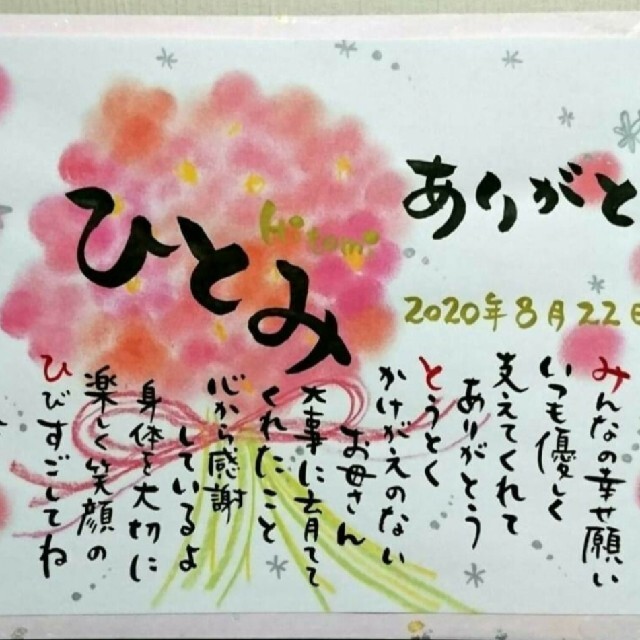 ありがと
2020年8月22日
ひとみ
Hitomi
みんなの幸せ願い
いつも優しく
支えてくれて
ありがとう
とうとく
かけがえのない
お母さん
大事に育てて
くれたこと
心から感謝
しているよ
身体を大切に
楽しく笑顔の
ひびすごしてね